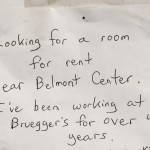 Looking for a room
for rent
near Belmont Center.
I've been working at
Bruegger's for over
years.